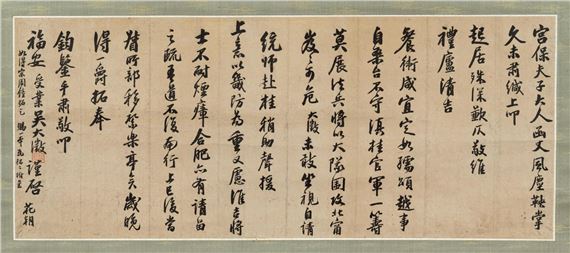 宮保夫子大人函丈風塵鞅掌
久未肅緘上叩
起居殊深歉仄敬維
禮廬清吉
餐衛咸宜定如孺頌越事
自桑台不守滇桂官軍一籌
莫展法兵將以大隊圍攻北甯
岌岌可危大澂未敢坐視自請
統師赴桂稍助聲援
上意以畿防為重又慮淮吉將
士不耐煙瘴合肥亦有請留
之疏遂不復南行上巳後當
督所部移紮樂亭去歲晚
得一爵拓奉
鈞鑒手肅敬叩
福安 受業吳大澂謹啓 花朝